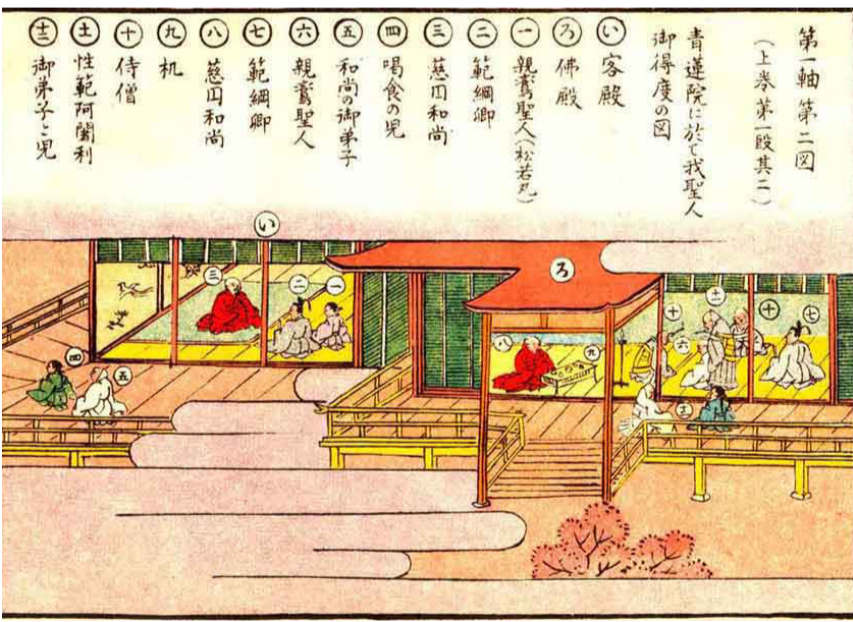 第一軸 第二図
(上巻第一段其二)
青蓮院に於て我聖人
御得度の図
い 客殿
ろ 佛殿
一 親鸞聖人(松若丸)
二 範綱卿
三 慈円和尚
四 喝食の児
五 和尚の御弟子
六 親鸞聖人
七 範綱卿
八 慈円和尚
九 机
十 侍僧
十一 性範阿闍利
十二 御弟子と児
い
三
二
一
四
五
ろ
八
九
十
六
十一
十
七
十二